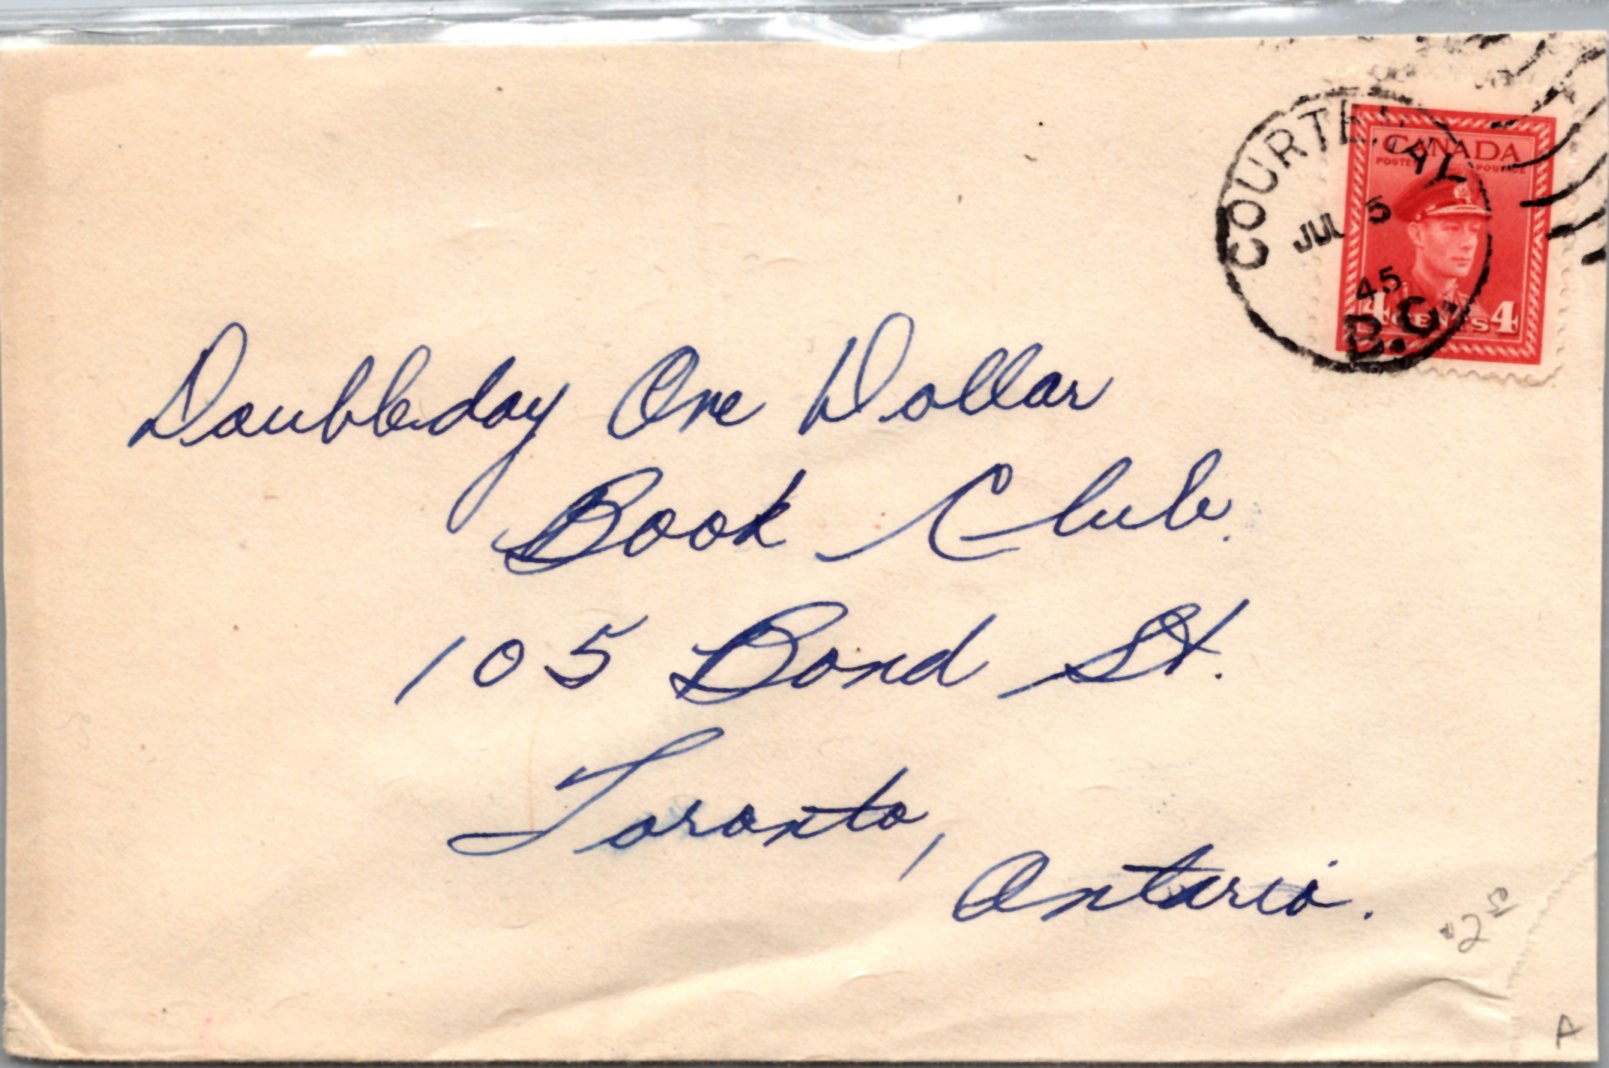 COURTENAY
JUL 5
45
B.C.
CANADA
POSTES POSTAGE
4 CENTS 4
Doubleday One Dollar
Book Club.
105 Bond St.
Toronto,
Ontario.
$2.50
A